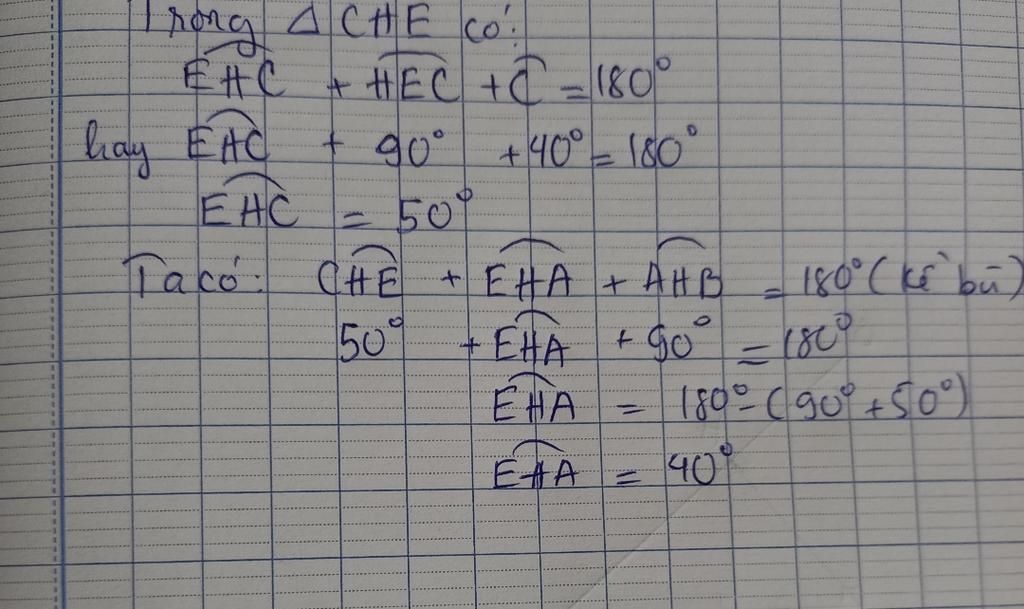 Trong Δ CHE có:
EHC + HEC + C = 180°
hay EHC + 90° + 40° = 180°
EHC = 50°
Ta có: CHE + EHA + AHB = 180° (kề bù)
50° + EHA + 90° = 180°
EHA = 180° - (90° + 50°)
EHA = 40°